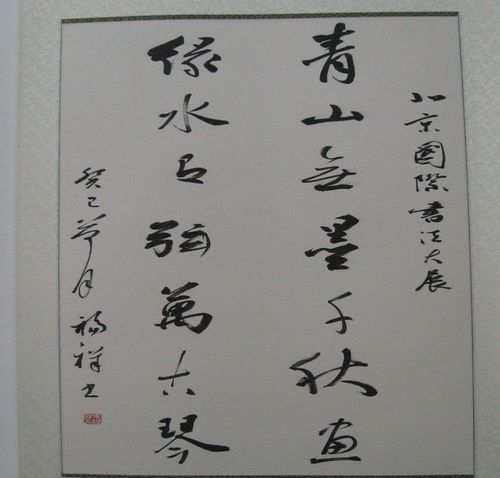 北京國際書法大展
青山無墨千秋畫
綠水弦萬古琴
癸巳月福祥书